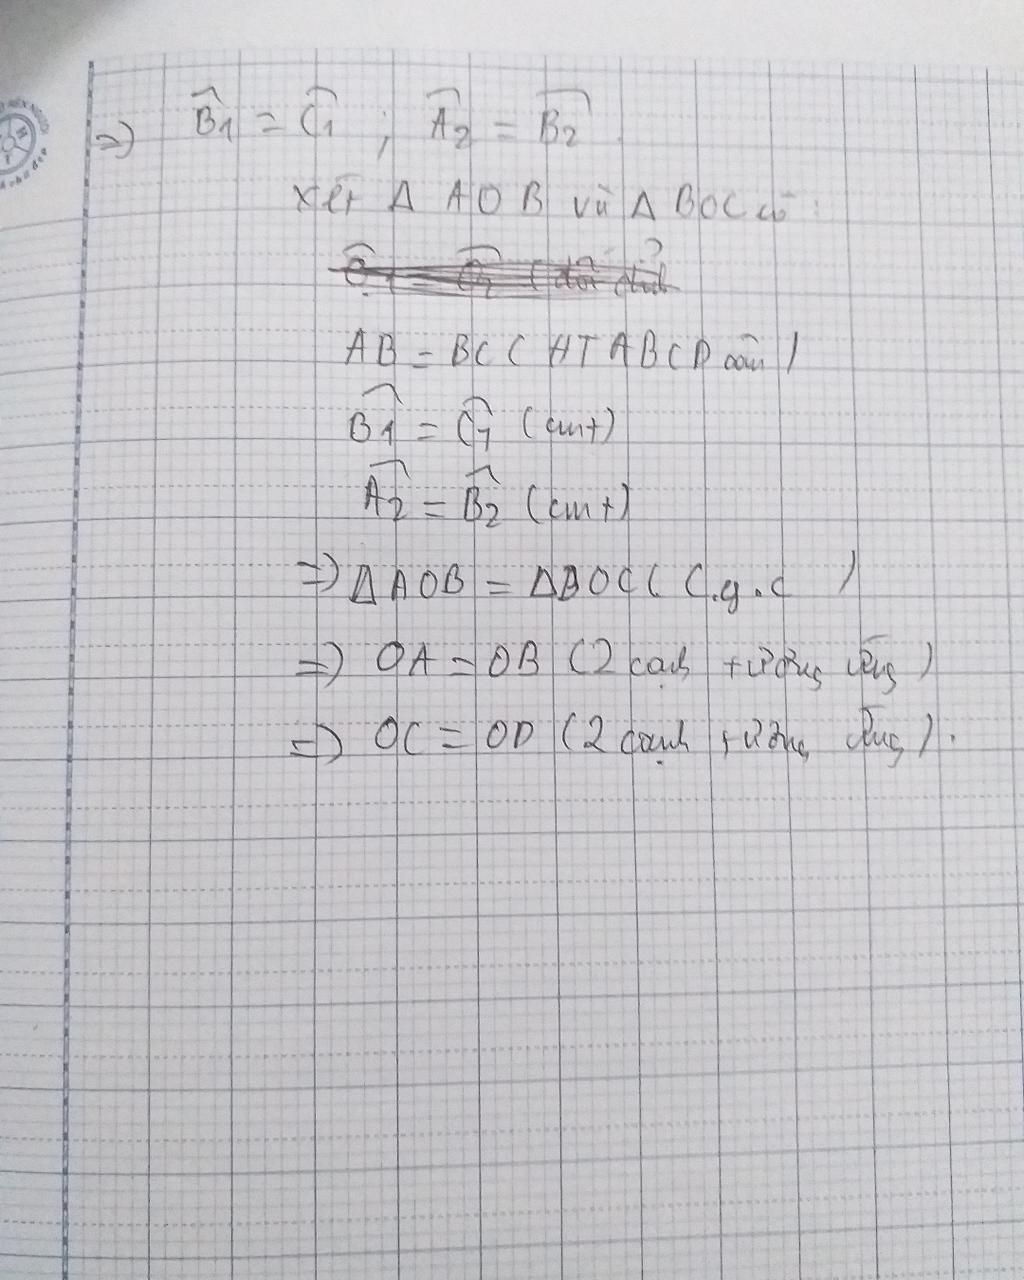 => B̂1 = Ĉ1 ; Â2 = B̂2
xét Δ AOB và Δ BOC có :
AB = BC ( HT ABCD cân )
B̂1 = Ĉ1 (cmt)
Â2 = B̂2 (cmt)
=> ΔAOB = ΔBOC ( C.g.c )
=> OA = OB (2 cạnh tương ứng )
=> OC = OD (2 cạnh tương ứng ).